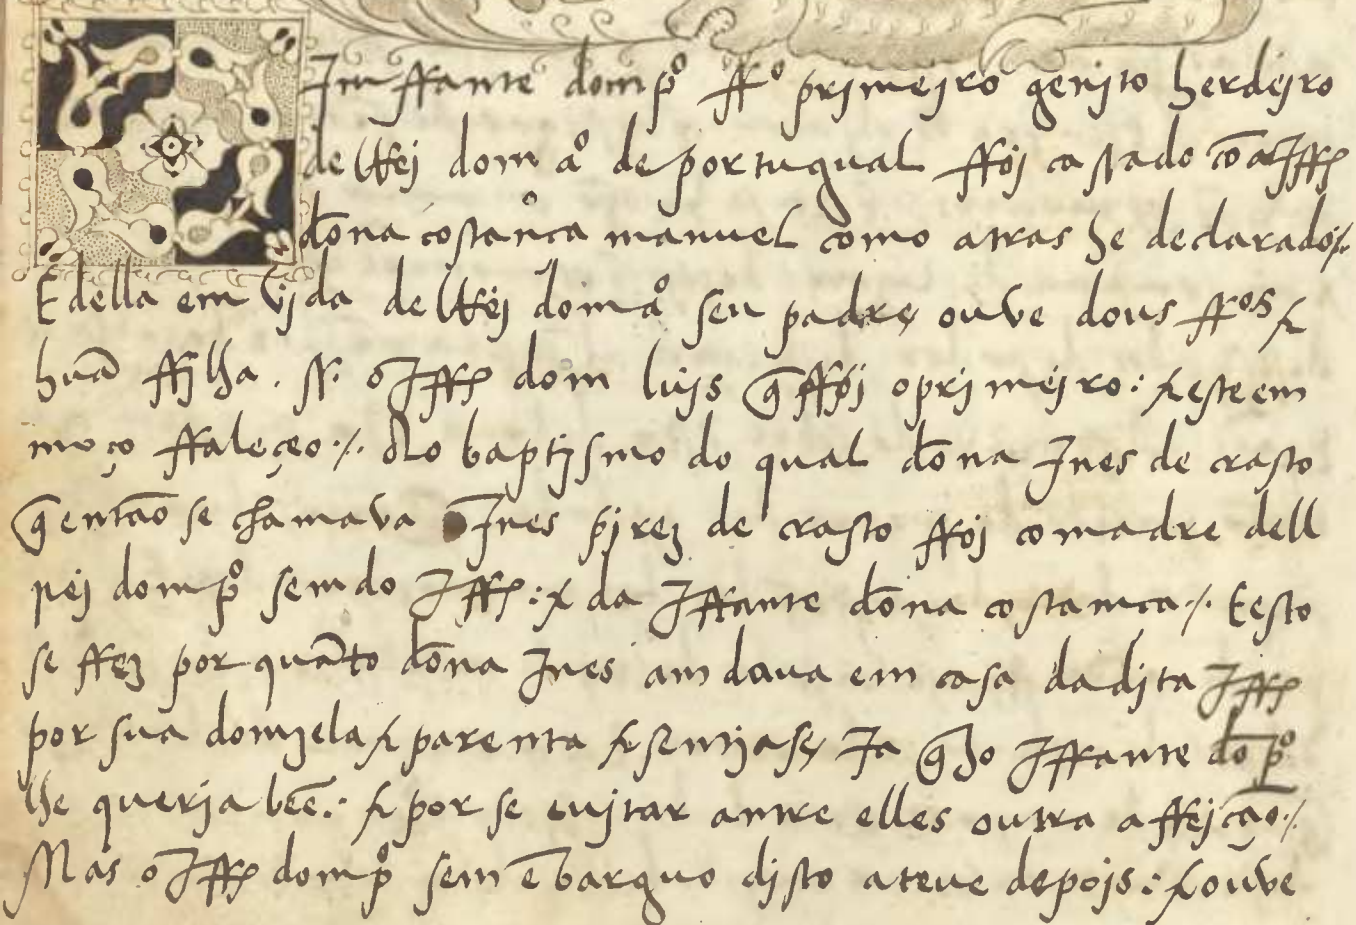 O Imffante dom pº ffº primeiro genito herdeiro
dellRei dom aº de portugual ffoj casado cõ a Iffe
dõna costãça manuel como atras he declarado ·/·
E della em vjda dellRej dom aº seu padre ouve dous ffºs &
huã ffilha . S. o Iffe dom luis q̃ ffoj o primeiro : & este em
moço ffaleçeo ·/· No baptismo do qual dõna Ines de crasto
q̃ então se chamava Ines pirez de crasto ffoj comadre dell
Rej dom pº semdo Iffe : & da Iffante dõna costamça ·/· E esto
se ffez por quãto dõna Ines amdaua em casa da dita Iffe
por sua domzela & parenta & sentiase Ja q̃ ho Iffante dõ pº
lhe queria bẽe : & por se euitar antre elles outra affeição ·/·
Mas o Iffe dom pº sem ẽbarguo disto a teue depois : & ouve